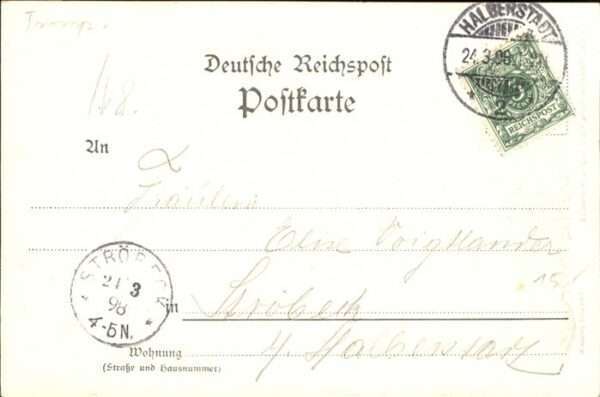 HALBERSTADT
24.3.98.
2
Deutsche Reichspost
Postkarte
REICHSPOST
An
Fräulein
Elise Voigtländer
STRÖBECK
24 3
98
4-5N.
in Ströbeck
Wohnung
(Straße und Hausnummer)